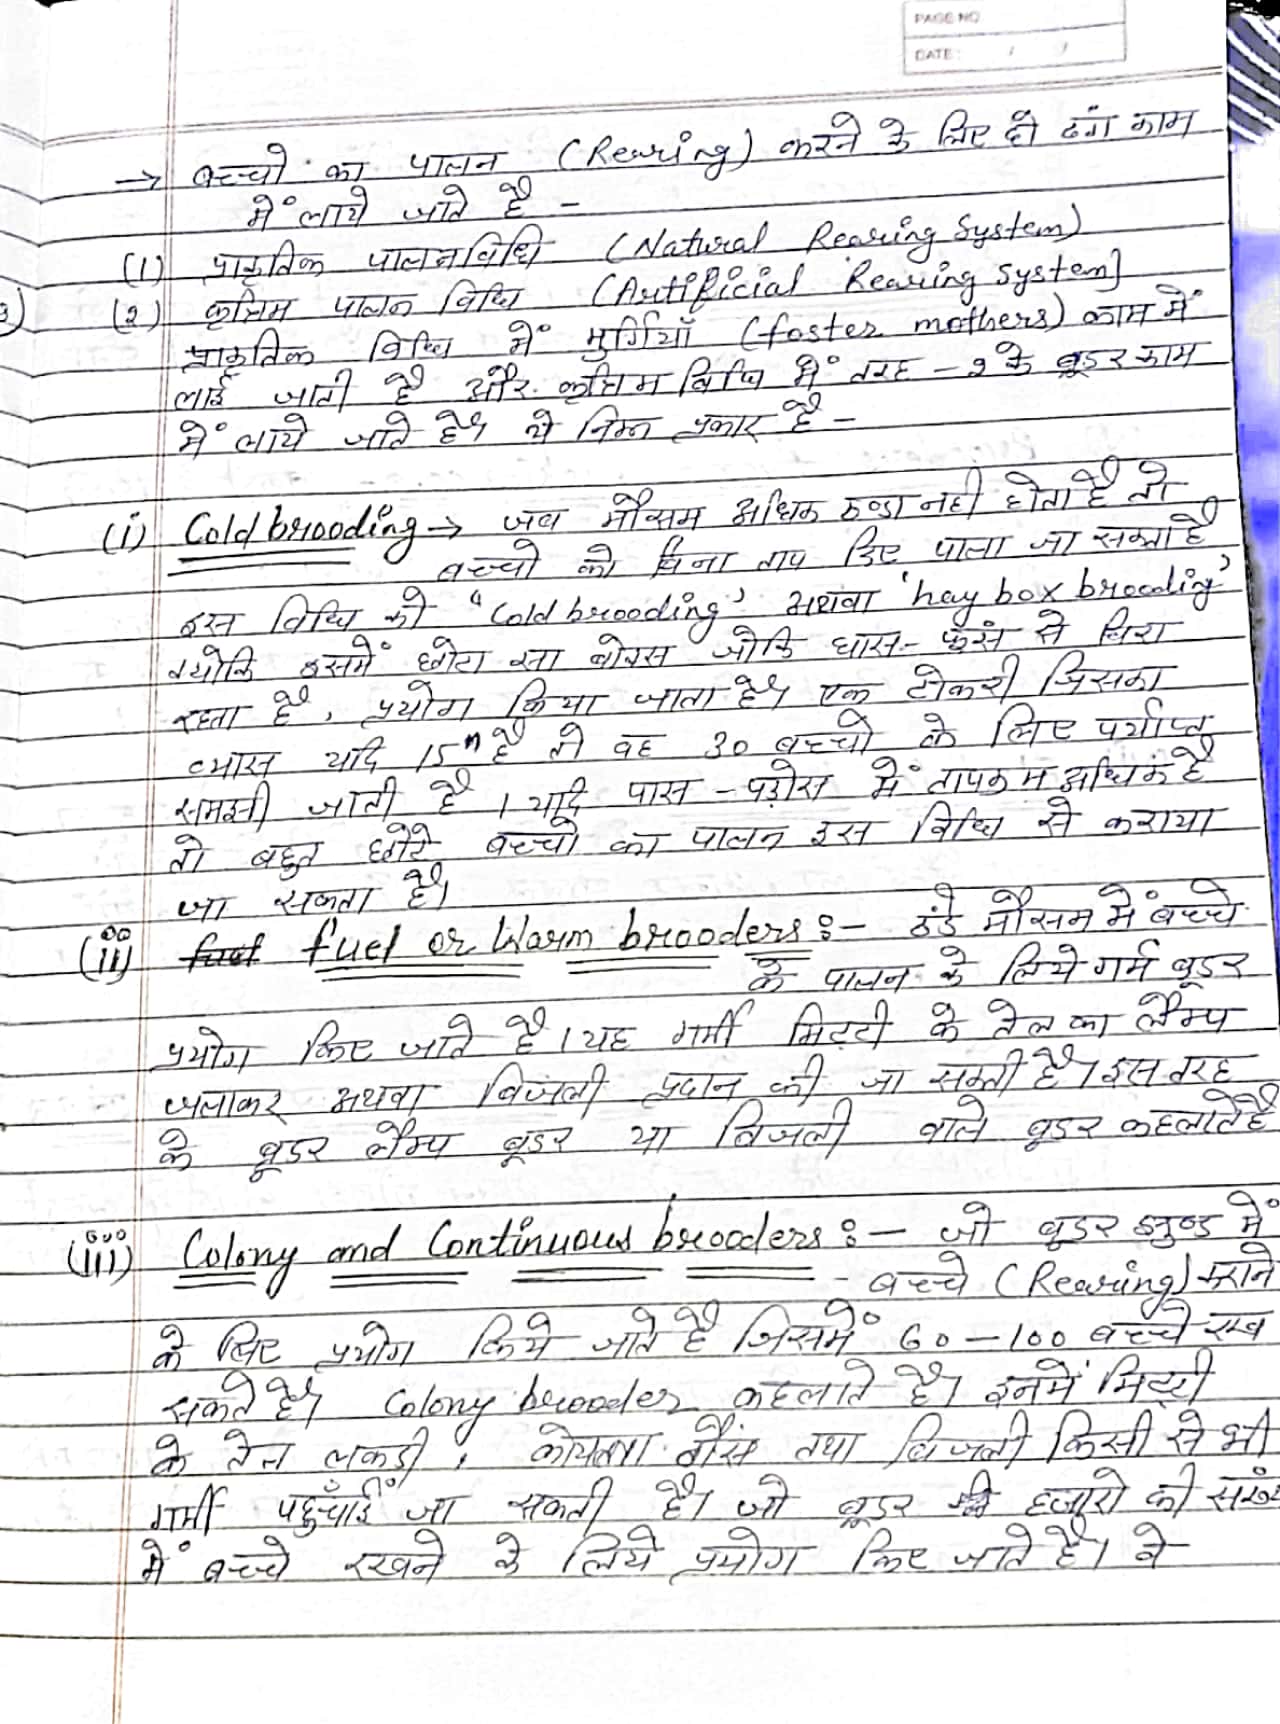 PAGE NO
DATE: / /
→ बच्चो का पालन (Rearing) करने के लिए दो ढंग काम
में लाये जाते है -
(1) प्राकृतिक पालनविधि (Natural Rearing System)
(2) कृत्रिम पालन विधि (Artificial Rearing System)
प्राकृतिक विधि में मुर्गियाँ (foster mothers) काम में
लाई जाती है और कृत्रिम विधि में तरह - 2 के ब्रूडर काम
में लाये जाते है। ये निम्न प्रकार है -
(i) Cold brooding → जब मौसम अधिक ठण्डा नही होता है तो
बच्चो को बिना ताप दिए पाला जा सकता है
इस विधि को "Cold brooding' अथवा 'hay box brooding'
क्योकि इसमें छोटा सा बोक्स जोकि घास- फूस से घिरा
रहता है, प्रयोग किया जाता है। एक टोकरी जिसका
व्यास यदि 15" है तो वह 30 बच्चो के लिए पर्याप्त
समझी जाती है । यदि पास - पड़ोस में तापक्रम अधिक है
तो बहुत छोटे बच्चो का पालन इस विधि से कराया
जा सकता है।
(ii) fuel or Warm brooders :- ठंडे मौसम में बच्चे
के पालन के लिये गर्म ब्रूडर
प्रयोग किए जाते है । यह गर्मी मिट्टी के तेल का लैम्प
जलाकर अथवा बिजली प्रदान की जा सक्ती है। इस तरह
के ब्रूडर लैम्प ब्रूडर या बिजली वाले ब्रूडर कहलाते है
(iii) Colony and Continuous brooders :- जो ब्रूडर झुण्ड में
- बच्चे (Rearing) कराने
के लिए प्रयोग किये जाते है जिसमें 60 - 100 बच्चे रख
सकते है। Colony brooder कहलाते है। इनमें मिट्टी
के तेल लकड़ी, कोयला गैस तथा बिजली किसी से भी
गर्मी पहुँचाई जा सकती है। जो ब्रूडर हजारो की संख्य
में बच्चे रखने के लिये प्रयोग किए जाते है। वे